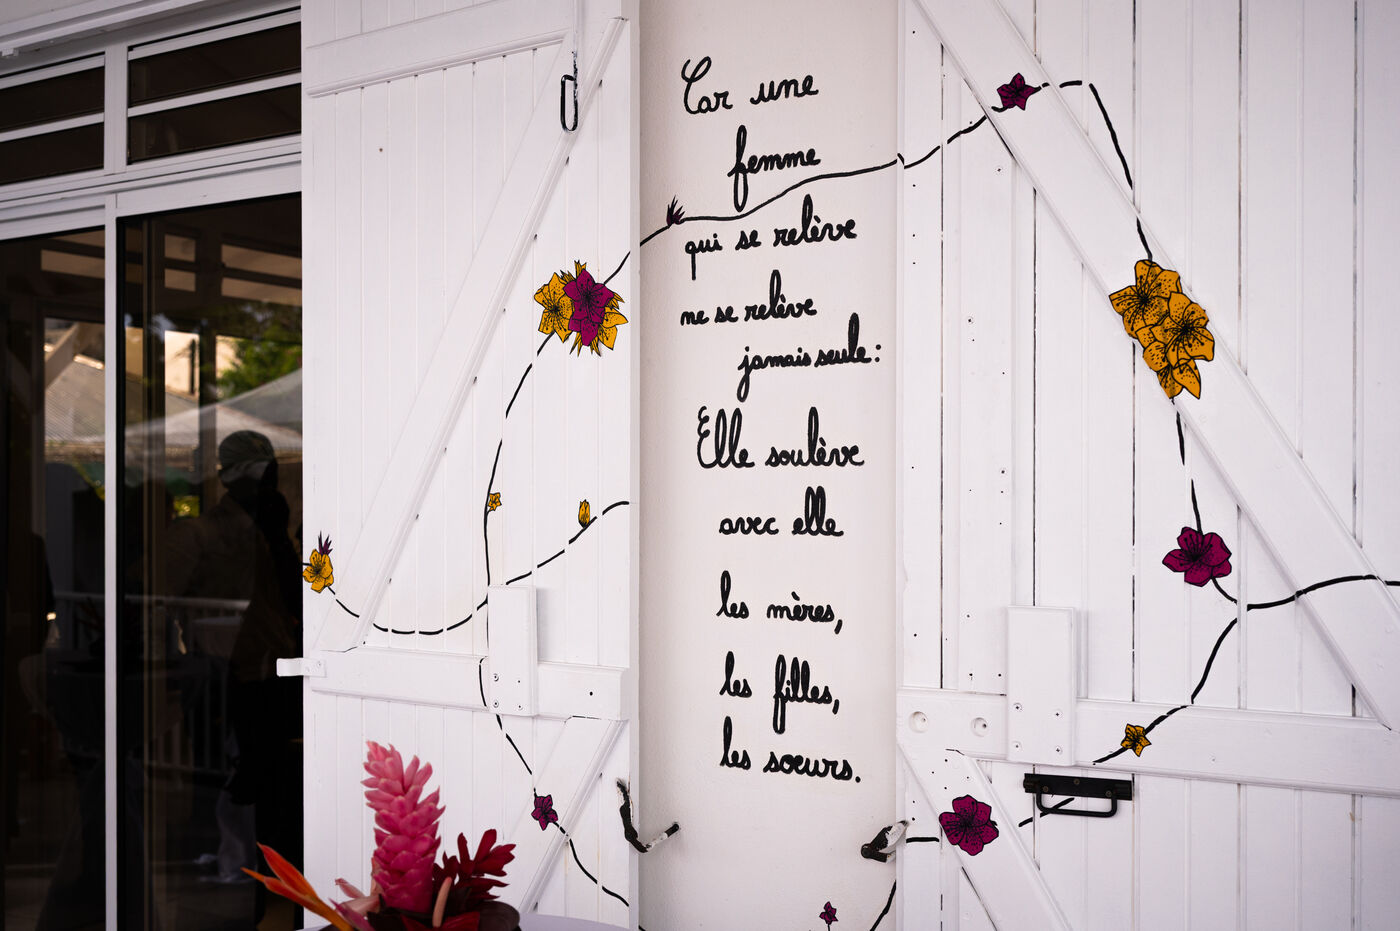 Car une
femme
qui se relève
ne se relève
jamais seule:
Elle soulève
avec elle
les mères,
les filles,
les soeurs.